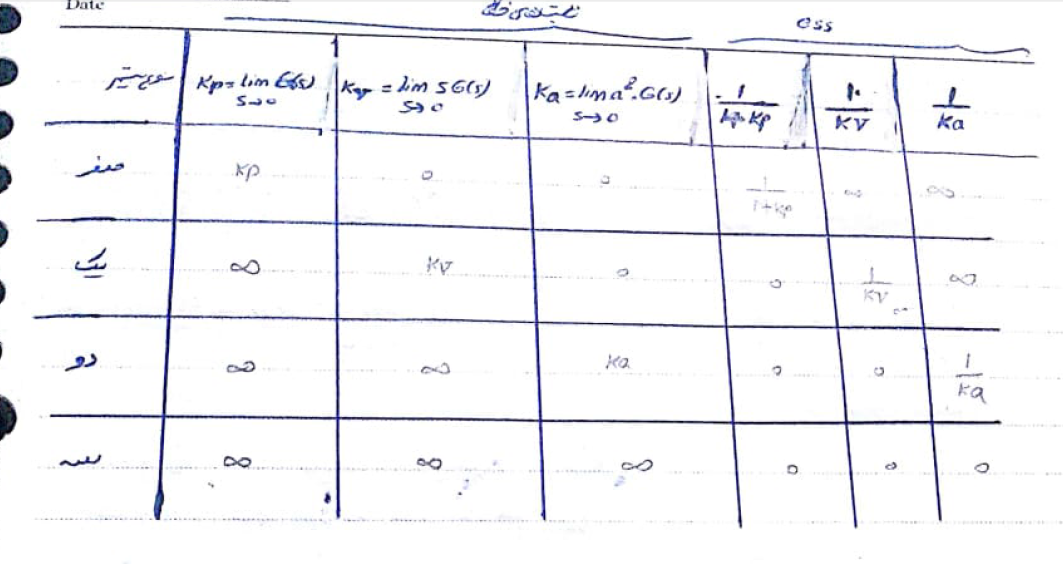 Date
ثابتهای خطا
ess
نوع سیستم Kp = lim G(s) s→0 Kv = lim sG(s) s→0 Ka = lim a². G(s) s→0 1/1+Kp 1/KV 1/Ka
صفر Kp 0 0 1/1+Kp ∞ ∞
یک ∞ KV 0 0 1/KV ∞
دو ∞ ∞ Ka 0 0 1/Ka
سه ∞ ∞ ∞ 0 0 0